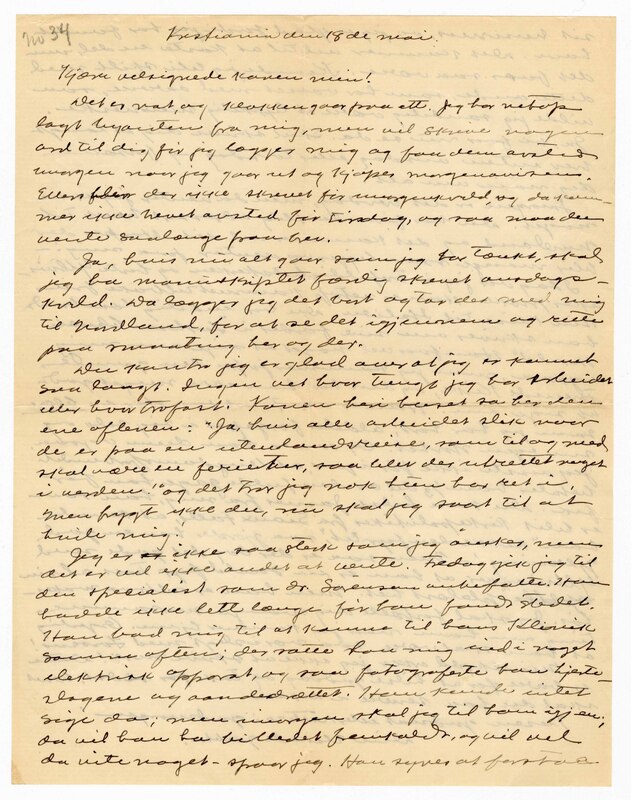 No 34
Kristiania den 18de mai.
Kjære velsignede konen min!
Det er nat, og klokken gaar paa ett. Jeg har netop
lagt blyanten fra mig, men vil skrive nogen
ord til dig før jeg lægger mig og faa dem avsted
imorgen naar jeg gaar ut og kjøper morgenavisen.
Ellers blir der ikke skrevet før imorgenkveld, og da kom-
mer ikke brevet avsted før tirsdag, og saa maa du
vente saalænge paa brev.
Ja, hvis nu alt gaar som jeg har tænkt, skal
jeg ha manuskriptet færdig skrevet onsdags-
kveld. Da lægger jeg det bort og tar det med mig
til Nordland, for at se det igjennem og rette
paa smaating her og der.
Du kan tro jeg er glad over at jeg er kommet
saa langt. Ingen vet hvor tungt jeg har arbeidet
eller hvor trofast. Konen her i huset sa her den
ene aftenen: "Ja, hvis alle arbeidet slik naar
de er paa en utenlandsreise, som til og med
skal være en ferietur, saa blev der utrettet noget
i verden!" og det tror jeg nok hun har ret i.
Men frygt ikke du, nu skal jeg snart til at
hvile mig.
Jeg er ikke saa sterk som jeg ønsker, men
det er vel ikke andet at vente. Fredag gik jeg til
den specialist som dr. Sørensen anbefalte. Han
hadde ikke lett længe før han fandt stedet.
Han bad mig til at komme til hans Klinik
samme aften; der satte han mig ind i noget
elektrisk apparat, og saa fotograferte han hjerte-
slagene og aandedrættet. Han kunde intet
sige da; men imorgen skal jeg til ham igjen;
da vil han ha billedet fremkaldt, og vil vel
da vite noget - spaar jeg. Han synes at forstaa